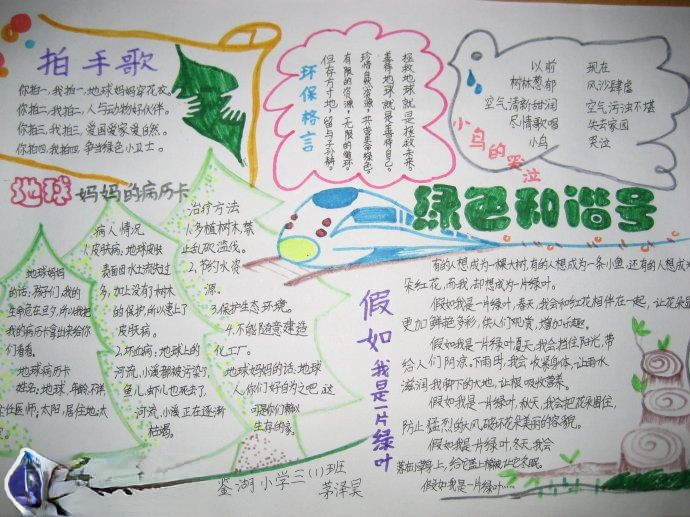 拍手歌
你拍一,我拍一,地球妈妈穿花衣。
你拍二,我拍二,人与动物好伙伴。
你拍三,我拍三,爱国爱家爱自然。
你拍四,我拍四,争当绿色小卫士。
环保格言
拯救地球就是拯救未来。
善待地球就是善待自己。
珍惜自然资源,共营生命绿色。
有限的资源,无限的循环。
但存方寸地,留与子孙耕。
小鸟的哭泣
以前
树林葱郁
空气清新甜润
尽情歌唱
小鸟
现在
风沙肆虐
空气污浊不堪
失去家园
哭泣
绿色和谐号
地球妈妈的病历卡
地球妈妈
的话:孩子们,我的
生命危在旦夕,所以我把
我的病历卡拿出来给你
们看看。
地球病历卡
姓名:地球,年龄:不详
主任医师:太阳,居住地:太
病人情况
1.皮肤病:地球皮肤
表面因水土流失过
多,加上没有了树木
的保护,所以患上了
皮肤病。
2.坏血病:地球上的
河流,小溪都被污染了,
鱼儿,虾儿也死去了,
河流,小溪正在逐渐
枯竭。
治疗方法
1.多植树木,禁
止乱砍滥伐。
2.节约水资
源。
3.保护生态环境。
4.不能随意建造
化工厂。
地球妈妈的话:地球
人,你们好自为之吧,这
可是你们赖以
生存的家。
假如我是一片绿叶
有的人想成为一棵大树,有的人想成为一条小鱼,还有的人想
朵红花,而我,却想成为一片绿叶。
假如我是一片绿叶,春天,我会和红花相伴在一起,让花朵显
更加鲜艳多彩,供人们观赏,增加乐趣。
假如我是一片绿叶,夏天,我会挡住阳光,带
给人们阴凉。下雨时,我会收集身体,让雨水
滋润我脚下的大地,让根吸收营养。
假如我是一片绿叶,秋天,我会把花朵围住,
防止猛烈的大风破坏花朵美丽的容貌。
假如我是一片绿叶,冬天,我会
上,给它盖上棉被让它冬眠。
假如我是一片绿叶……
鉴湖小学三(1)班
茅泽昊